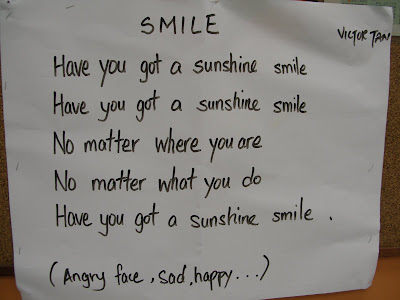 SMILE
VICTOR TAN
Have you got a sunshine smile
Have you got a sunshine smile
No matter where you are
No matter what you do
Have you got a sunshine smile .
(Angry face, sad, happy...)